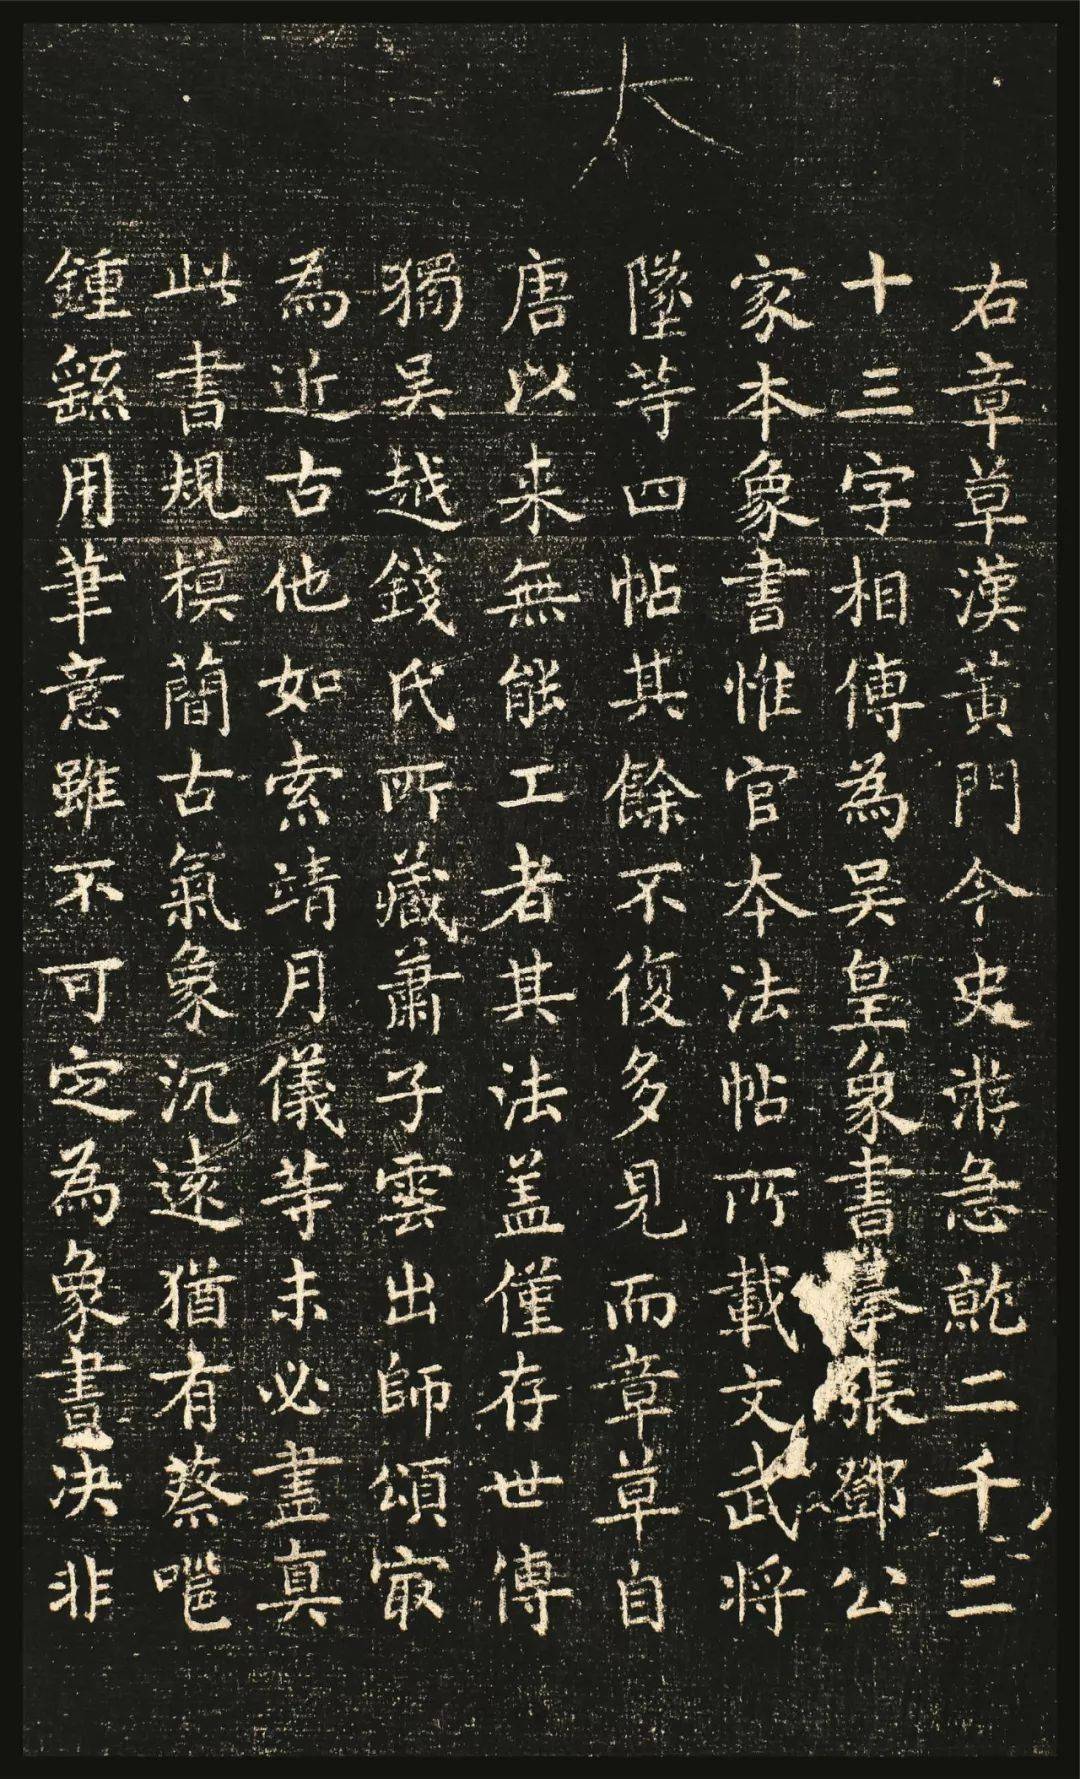 大
右章草漢黃門令史游急就二千二
十三字相傳為吴皇象書摹張鄧公
家本象書惟官本法帖所載文武將
墜等四帖其餘不復多見而章草自
唐以來無能工者其法盖僅存世傳
獨吴越錢氏所藏蕭子雲出師頌寂
為近古他如索靖月儀等未必盡真
此書規模簡古氣象沉遠猶有蔡邕
鍾繇用筆意雖不可定為象書决非